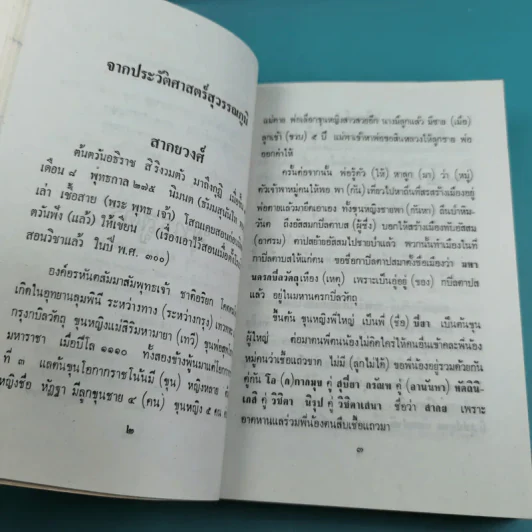 จากประวัติศาสตร์สุวรรณภูมิ
สากยวงศ์
ต้นตรว์มอธิราช สิริงามตรัว มาถึงกุฏิ เมื่อขึ้น
เดือน ๘ พุทธกาล ๒๗๕ นิมนต (ธัมมสุนันโท
เล่า เชื้อสาย (พระ พุทธ เจ้า) โสณเถบสอนก่อน
ตวันพัง (แล้ว) ให้เขียน (เรื่องเอาไว้สอนเมื่อ
สอนวิชาแล้ว ในปี พ.ศ. ๓๐๐)
องค์อรหันตสัมมาสัมพุทธเจ้า ชาคิอริยก โคตม
เกิดในอุทยานลุมพนี ระหว่างทาง (ระหว่างกรุง) เทวทหะ
กรุงกาบิลวัดถุ ขุนหญิงแม่สิริมหามายา (เทวี) ขุนพ่อ
มหาราชา เมื่อปีโล ๑๑๑๐ ทั้งสองข้างผู้นมาแต่โอกา
ที่ ๓ แลต้นขุนโอกากราชในวันมี (ขุน) หญิงหลาย
หญิงชื่อ ทัฏฐา มีลูกขุนชาย ๔ (คน) ขุนหญิง ๕ คน
๒
แม่ตาย พ่อเลือกขุนหญิงสาวสวยอีก นางมีลูกแล้ว มีชาย (เมื่อ)
ลูกเข้า (ขวบ) ๕ ปี แม่พาเข้าหาพ่อขอสืนหลวงให้ลูกชาย พ่อ
ออกคำให้
ครั้นต่อจากนั้น พ่อรู้ตัว (ให้) หาลูก (มา) ว่า (หมู่)
ตัวเข้าพาหมู่คนให้พอ พา (กัน) เที่ยวไปหาถิ่นที่สรสร้างเมืองอยู่
พ่อตายแล้วมายึดเอาเอง ทั้งขุนหญิงชายพา (กันหา) ถิ่นป่าหิม
วันต ถึงอัสสมกาบิลดาบส (ผู้ซึ่ง) บอกให้สร้างเมืองทับอัสสม
(อาศรม) ดาบสย้ายอัสสมไปชายป่าแล้ว พวกนั้นทำเมืองในที่
กาบิลดาบสให้แก่ตน ขอชื่อกาบิลดาบสมาตั้งชื่อเมืองว่า มหา
นครกบิลวัตถุเทือง (เหตุ) เพราะเป็นอู่อยู่ (ของ) กบิลดาบส
แล้ว อยู่ในมหานครกาบิลวัตถุ
ขึ้นต้น ขุนหญิงพี่ใหญ่ เป็นพี่ (ชื่อ) บียา เป็นต้นขุน
ผู้ใหญ่ ต่อมาคนพี่คนน้องไม่คิดใคร่ให้คนอื่นเข้าคละพี่น้อง
หมู่คนว่าชื่อแถวขาด ไม่มี (ลูกไม่ได้) ขอพี่น้องอยู่รวมด้วยกัน
คู่กัน โอ (ก)กาลมุข คู่ สุบียา กรัณฑ คู่ (อานันทา) หัตถินิ
เกสิ คู่ วิชิตา นิรูป คู่ วิชิตาเสนา ชื่อว่า สากส เพราะ
อาตหานแลร่วมพี่น้องตนสืบเชื้อแถวมา
๓